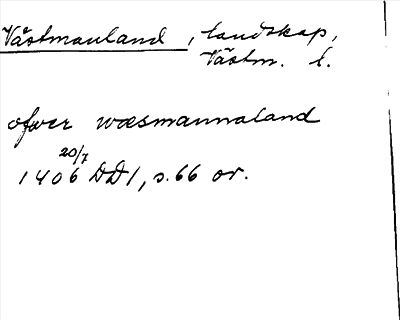 Västmanland, landskap,
Västm. l.
ofwer wæsmannaland
20/7
1406 DD1, s. 66 or.